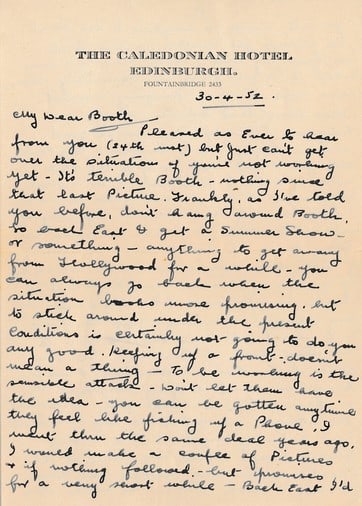 THE CALEDONIAN HOTEL
EDINBURGH.
FOUNTAINBRIDGE 2433
30-4-52.
My Dear Booth
Pleased as Ever to hear
from you (24th inst) but Just can't get
over the situation of you're not working
yet - It's terrible Booth - nothing since
that last Picture. Frankly, as I've told
you before, don't hang around Booth.
Go back East & get a Summer Show -
or something - anything to get away
from Hollywood for a while - you
can always go back when the
situation looks more promising. but
to stick around under the present
conditions is certainly not going to do you
any good. Keeping up a front doesn't
mean a thing - To be working is the
sensible attack - Don't let them have
the idea - you can be gotten anytime
they feel like picking up a Phone. I
went thru the same deal years ago.
I would make a couple of Pictures
& if nothing followed - but promises
for a very short while - Back East I'd